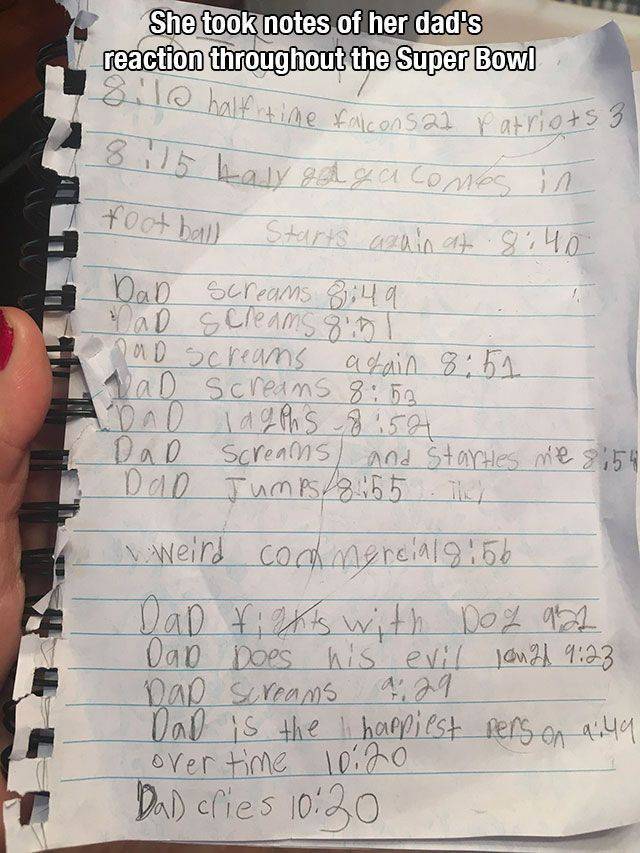 She took notes of her dad's
reaction throughout the Super Bowl
8:10 halftime falcons 21 patriots 3
8:15 Lady gaga comes in
football starts again at 8:40
DaD screams 8:49
DaD screams 8:51
DaD screams again 8:51
DaD screams 8:53
DaD 8:54
DaD screams and startles me 8:54
DaD Jumps 8:55
weird commercial 8:56
DaD fights with Dog 9:21
DaD Does his evil laugh 9:23
DaD screams 9:29
DaD is the happiest person 9:49
over time 10:20
DaD cries 10:30